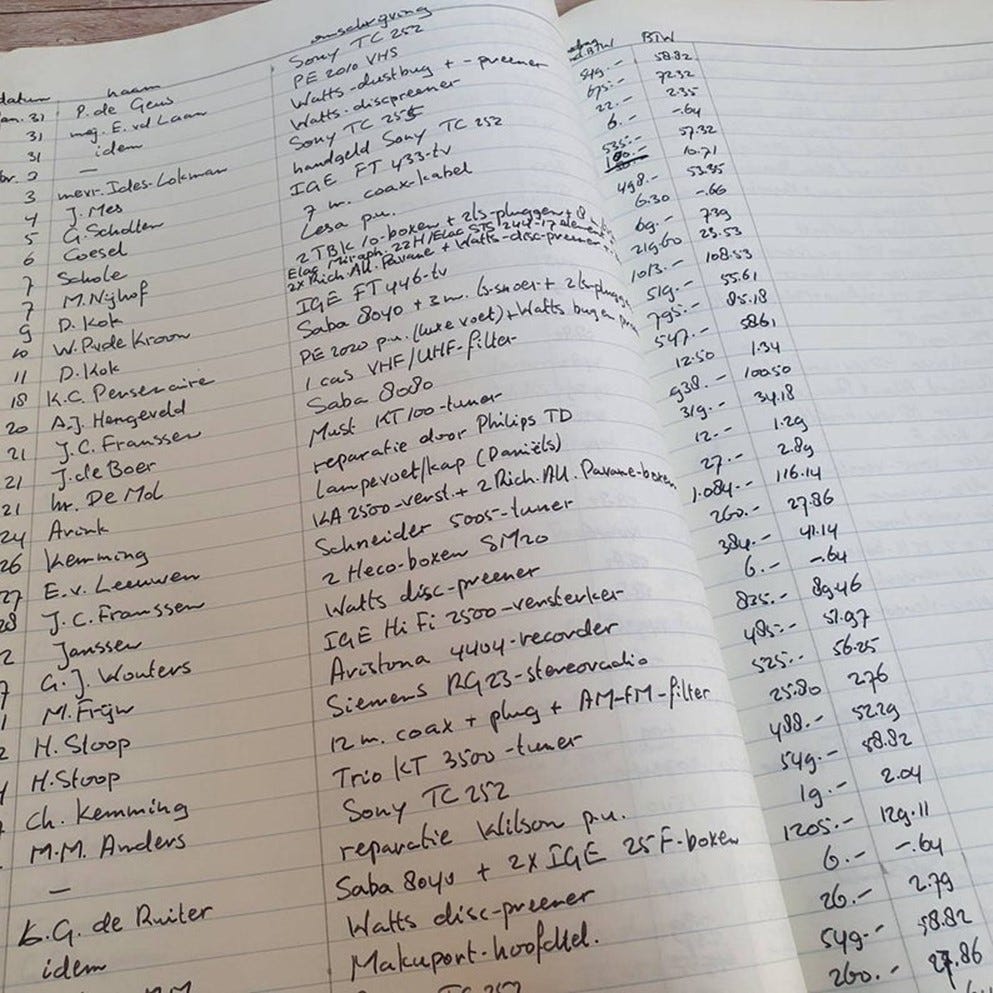 datum naam omschrijving BTW
31 P. de Geus Sony TC 252 549.- 58.82
31 mej. E. vd Laan PE 2010 VHS 675.- 72.32
31 idem Watts-dustbug + -preener 22.- 2.35
2 — Watts-discpreener 6.- -.64
3 mevr. Ides-Lokman Sony TC 255 535.- 57.32
4 J. Mes handgeld Sony TC 252 100.- 10.71
5 G. Scholten IGE FT 433-tv 498.- 53.35
6 Coesel 7 m. coax-kabel 6.30 -.66
7 Schole Lesa p.u. 69.- 7.39
7 M. Nijhof 2 TBK 10-boxen + 2 ls-pluggen + 8 219.60 23.53
9 D. Kok Elac Miraph. 22H/Elac STS 244-17 element
2x Rich. All. Pavane + Watts-disc-preener 1013.- 108.53
10 W.P. vde Kroon IGE FT 446-tv 519.- 55.61
11 D. Kok Saba 8040 + 3 m. ls-snoer + 2 ls-plugg 795.- 85.18
18 K.C. Pensenaire PE 2020 p.u. (luxe voet) + Watts bug en 547.- 58.61
20 A.J. Hengeveld 1 cas VHF/UHF-filter 12.50 1.34
21 J.C. Franssen Saba 8080 938.- 100.50
21 J. de Boer Must KT100-tuner 319.- 34.18
21 hr. De Mol reparatie door Philips TD 12.- 1.29
24 Avink lampevoet/kap (Daniëls) 27.- 2.89
26 Kemming KA 2500-verst. + 2 Rich. All. Pavane-boxen 1.084.- 116.14
27 E.v. Leeuwen Schneider 5005-tuner 260.- 27.86
28 J.C. Franssen 2 Heco-boxen SM20 384.- 41.14
2 Janssen Watts disc-preener 6.- -.64
7 G.J. Wouters IGE HiFi 2500-versterker 835.- 89.46
1 M. Frijn Aristona 4404-recorder 485.- 51.97
2 H. Sloop Siemens RG23-stereoradio 525.- 56.25
H. Stoop 12 m. coax + plug + AM-FM-filter 25.80 2.76
Ch. Kemming Trio KT 3500-tuner 488.- 52.29
M.M. Anders Sony TC 252 549.- 58.82
— reparatie Wilson p.u. 19.- 2.04
K.G. de Ruiter Saba 8040 + 2x IGE 25 F-boxen 1205.- 129.11
idem Watts disc-preener 6.- -.64
Makuport-hoofdtel. 26.- 2.79
TC 252 549.- 58.82
260.- 27.86